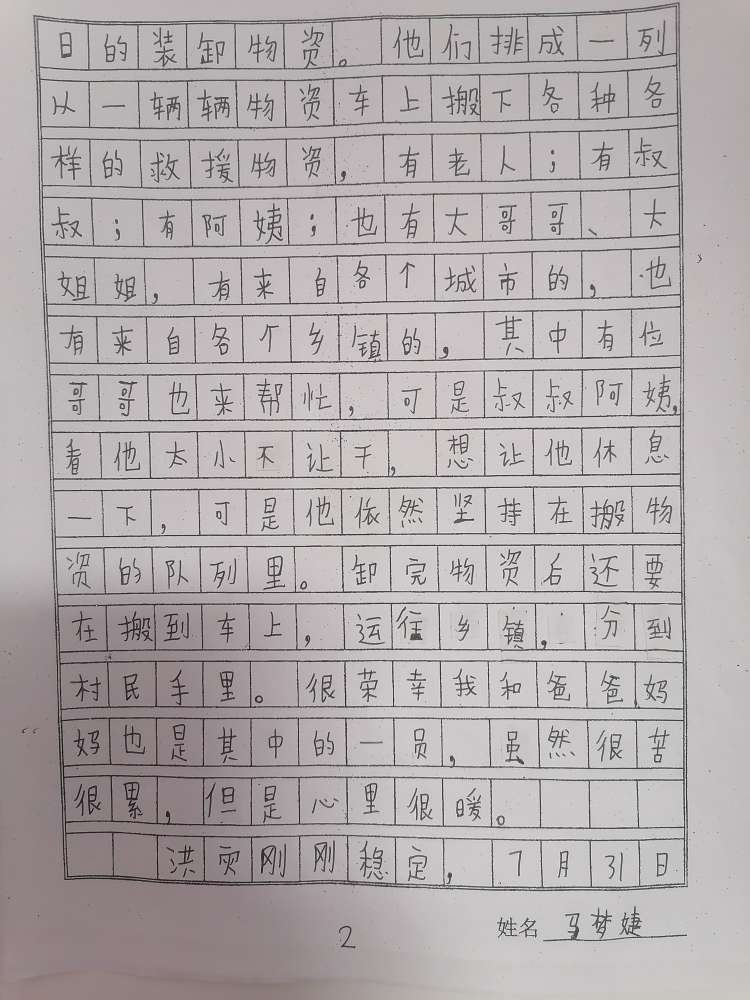 日的装卸物资。他们排成一列
从一辆辆物资车上搬下各种各
样的救援物资，有老人；有叔
叔；有阿姨；也有大哥哥、大
姐姐，有来自各个城市的，也
有来自各个乡镇的，其中有位
哥哥也来帮忙，可是叔叔阿姨，
看他太小不让干，想让他休息
一下，可是他依然坚持在搬物
资的队列里。卸完物资后还要
在搬到车上，运往乡镇，分到
村民手里。很荣幸我和爸爸妈
妈也是其中的一员，虽然很苦
很累，但是心里很暖。
洪灾刚刚稳定，7月31日
2
姓名 马梦婕